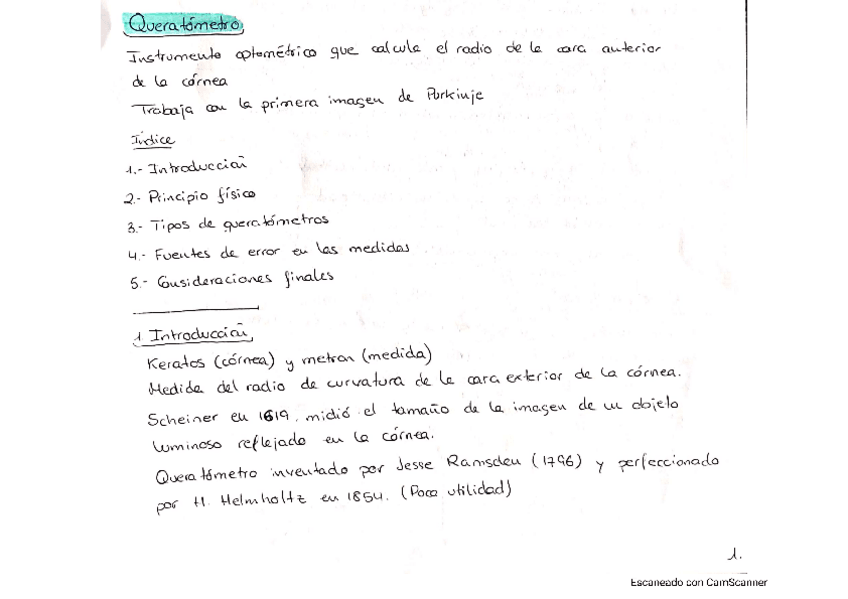 Queratómetro
Instrumento optométrico que calcula el radio de la cara anterior
de la córnea
Trabaja con la primera imagen de Purkinje
Índice
1.- Introducción
2.- Principio físico
3.- Tipos de queratómetros
4.- Fuentes de error en las medidas
5.- Consideraciones finales
1 Introducción
Keratos (córnea) y metron (medida)
Medida del radio de curvatura de la cara exterior de la córnea.
Scheiner en 1619, midió el tamaño de la imagen de un objeto
luminoso reflejado en la córnea.
Queratómetro inventado por Jesse Ramsden (1796) y perfeccionado
por H. Helmholtz en 1854. (Poca utilidad)
1.
Escaneado con CamScanner